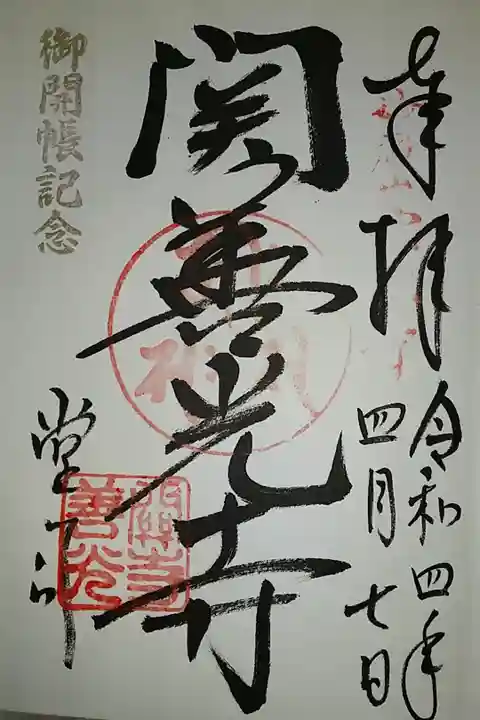 奉拝
令和四年
四月七日
関善光寺
御開帳記念
堂印
關善光寺